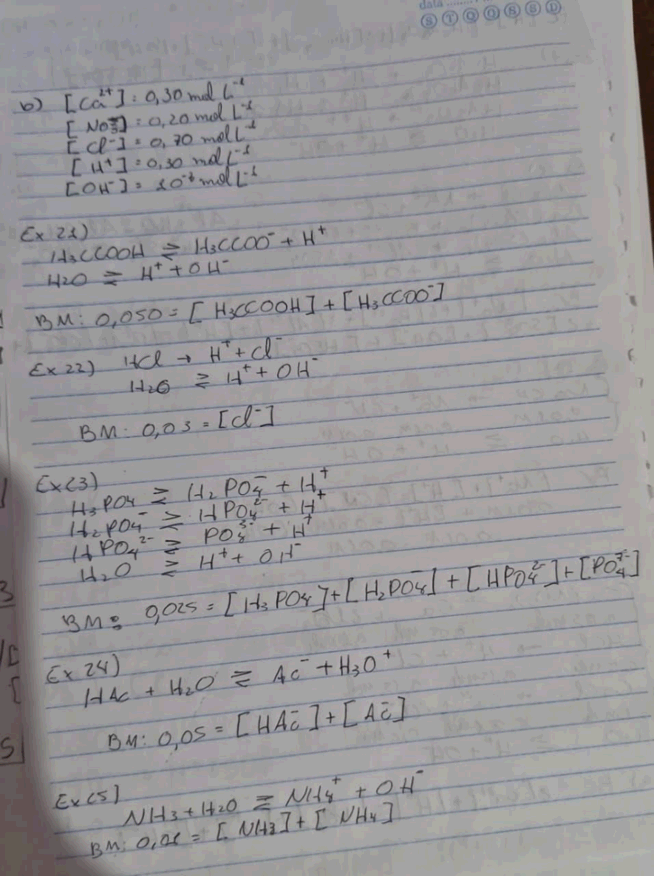 data
S T Q Q S S D
b) [Ca²⁺]: 0,30 mol L⁻¹
[NO₃⁻] = 0,20 mol L⁻¹
[Cl⁻] = 0,70 mol L⁻¹
[H⁺] = 0,30 mol L⁻¹
[OH⁻] = mol L⁻¹
Ex 21)
H₃CCOOH ⇌ H₃CCOO⁻ + H⁺
H₂O ⇌ H⁺ + OH⁻
BM: 0,050 = [H₃CCOOH] + [H₃CCOO⁻]
Ex 22) HCl → H⁺ + Cl⁻
H₂O ⇌ H⁺ + OH⁻
BM: 0,03 = [Cl⁻]
Ex 23)
H₃PO₄ ⇌ H₂PO₄⁻ + H⁺
H₂PO₄⁻ ⇌ HPO₄²⁻ + H⁺
HPO₄²⁻ ⇌ PO₄³⁻ + H⁺
H₂O ⇌ H⁺ + OH⁻
BM: 0,025 = [H₃PO₄] + [H₂PO₄⁻] + [HPO₄²⁻] + [PO₄³⁻]
Ex 24)
HAc + H₂O ⇌ Ac⁻ + H₃O⁺
BM: 0,05 = [HAc⁻] + [Ac⁻]
Ex 25)
NH₃ + H₂O ⇌ NH₄⁺ + OH⁻
BM: = [NH₃] + [NH₄]